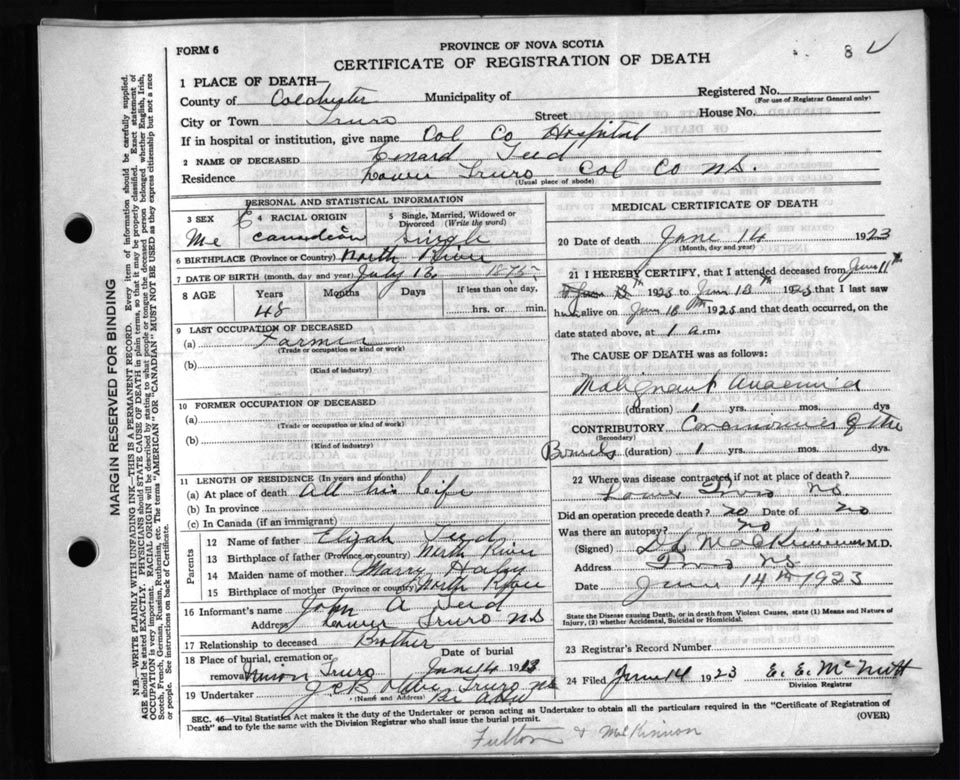 8 V
FORM 6
PROVINCE OF NOVA SCOTIA
CERTIFICATE OF REGISTRATION OF DEATH
1 PLACE OF DEATH—
County of Colchester Municipality of Registered No.
(For use of Registrar General only)
City or Town Truro Street House No.
If in hospital or institution, give name Col Co Hospital
2 NAME OF DECEASED Teed
Residence Lower Truro Col Co N.S.
(Usual place of abode)
PERSONAL AND STATISTICAL INFORMATION
3 SEX
4 RACIAL ORIGIN
5 Single, Married, Widowed or Divorced (Write the word)
Canadian Single
6 BIRTHPLACE (Province or Country) North River
7 DATE OF BIRTH (month, day and year) July 12 1875
8 AGE Years Months Days If less than one day,
48 hrs. or min.
9 LAST OCCUPATION OF DECEASED
(a) Farmer
(Trade or occupation or kind or work)
(b)
(Kind of industry)
10 FORMER OCCUPATION OF DECEASED
(a)
(Trade or occupation or kind of work)
(b)
(Kind of industry)
11 LENGTH OF RESIDENCE (In years and months)
(a) At place of death All his life
(b) In province
(c) In Canada (if an immigrant)
Parents
12 Name of father Elijah Teed
13 Birthplace of father (Province or country) North River
14 Maiden name of mother
15 Birthplace of mother (Province or country) North River
16 Informant's name John A Teed
Address Lower Truro NS
17 Relationship to deceased Brother
18 Place of burial, cremation or removal Truro
Date of burial
June 14 19
19 Undertaker Truro NS
(Name and Address)
MEDICAL CERTIFICATE OF DEATH
20 Date of death June 14 1923
(Month, day and year)
21 I HEREBY CERTIFY, that I attended deceased from June 11th
1923 to June 13th 1923 that I last saw
h alive on June 13th 1923 and that death occurred, on the
date stated above, at 1 a.m.
The CAUSE OF DEATH was as follows:
Malignant Anaemia
(duration) 1 yrs. mos. dys
CONTRIBUTORY of the
(Secondary)
Bowels (duration) 1 yrs. mos. dys.
22 Where was disease contracted if not at place of death?
Lower Truro NS
Did an operation precede death? No Date of No
Was there an autopsy? No
(Signed) MacKinnon M.D.
Address Truro NS
Date June 14th 1923
State the Disease causing Death, or in death from Violent Causes, state (1) Means and Nature of Injury, (2) whether Accidental, Suicidal or Homicidal.
23 Registrar's Record Number
24 Filed June 14 1923 E. E. McNutt
Division Registrar
SEC. 46—Vital Statistics Act makes it the duty of the Undertaker or person acting as Undertaker to obtain all the particulars required in the "Certificate of Registration of
Death" and to fyle the same with the Division Registrar who shall issue the burial permit. (OVER)
Fulton & MacKinnon
MARGIN RESERVED FOR BINDING
N.B.—WRITE PLAINLY WITH UNFADING INK—THIS IS A PERMANENT RECORD. Every item of information should be carefully supplied.
AGE should be stated EXACTLY. PHYSICIANS should STATE CAUSE OF DEATH in plain terms, so that it may be properly classified. Exact statement of
OCCUPATION is very important. RACIAL ORIGIN will be described by stating to what people or tongue the deceased person belonged whether English, Irish,
Scotch, French, German, Russian, Ruthenian, etc. The terms "AMERICAN" OR "CANADIAN" MUST NOT BE USED as they express citizenship but not a race
or people. See instructions on back of Certificate.